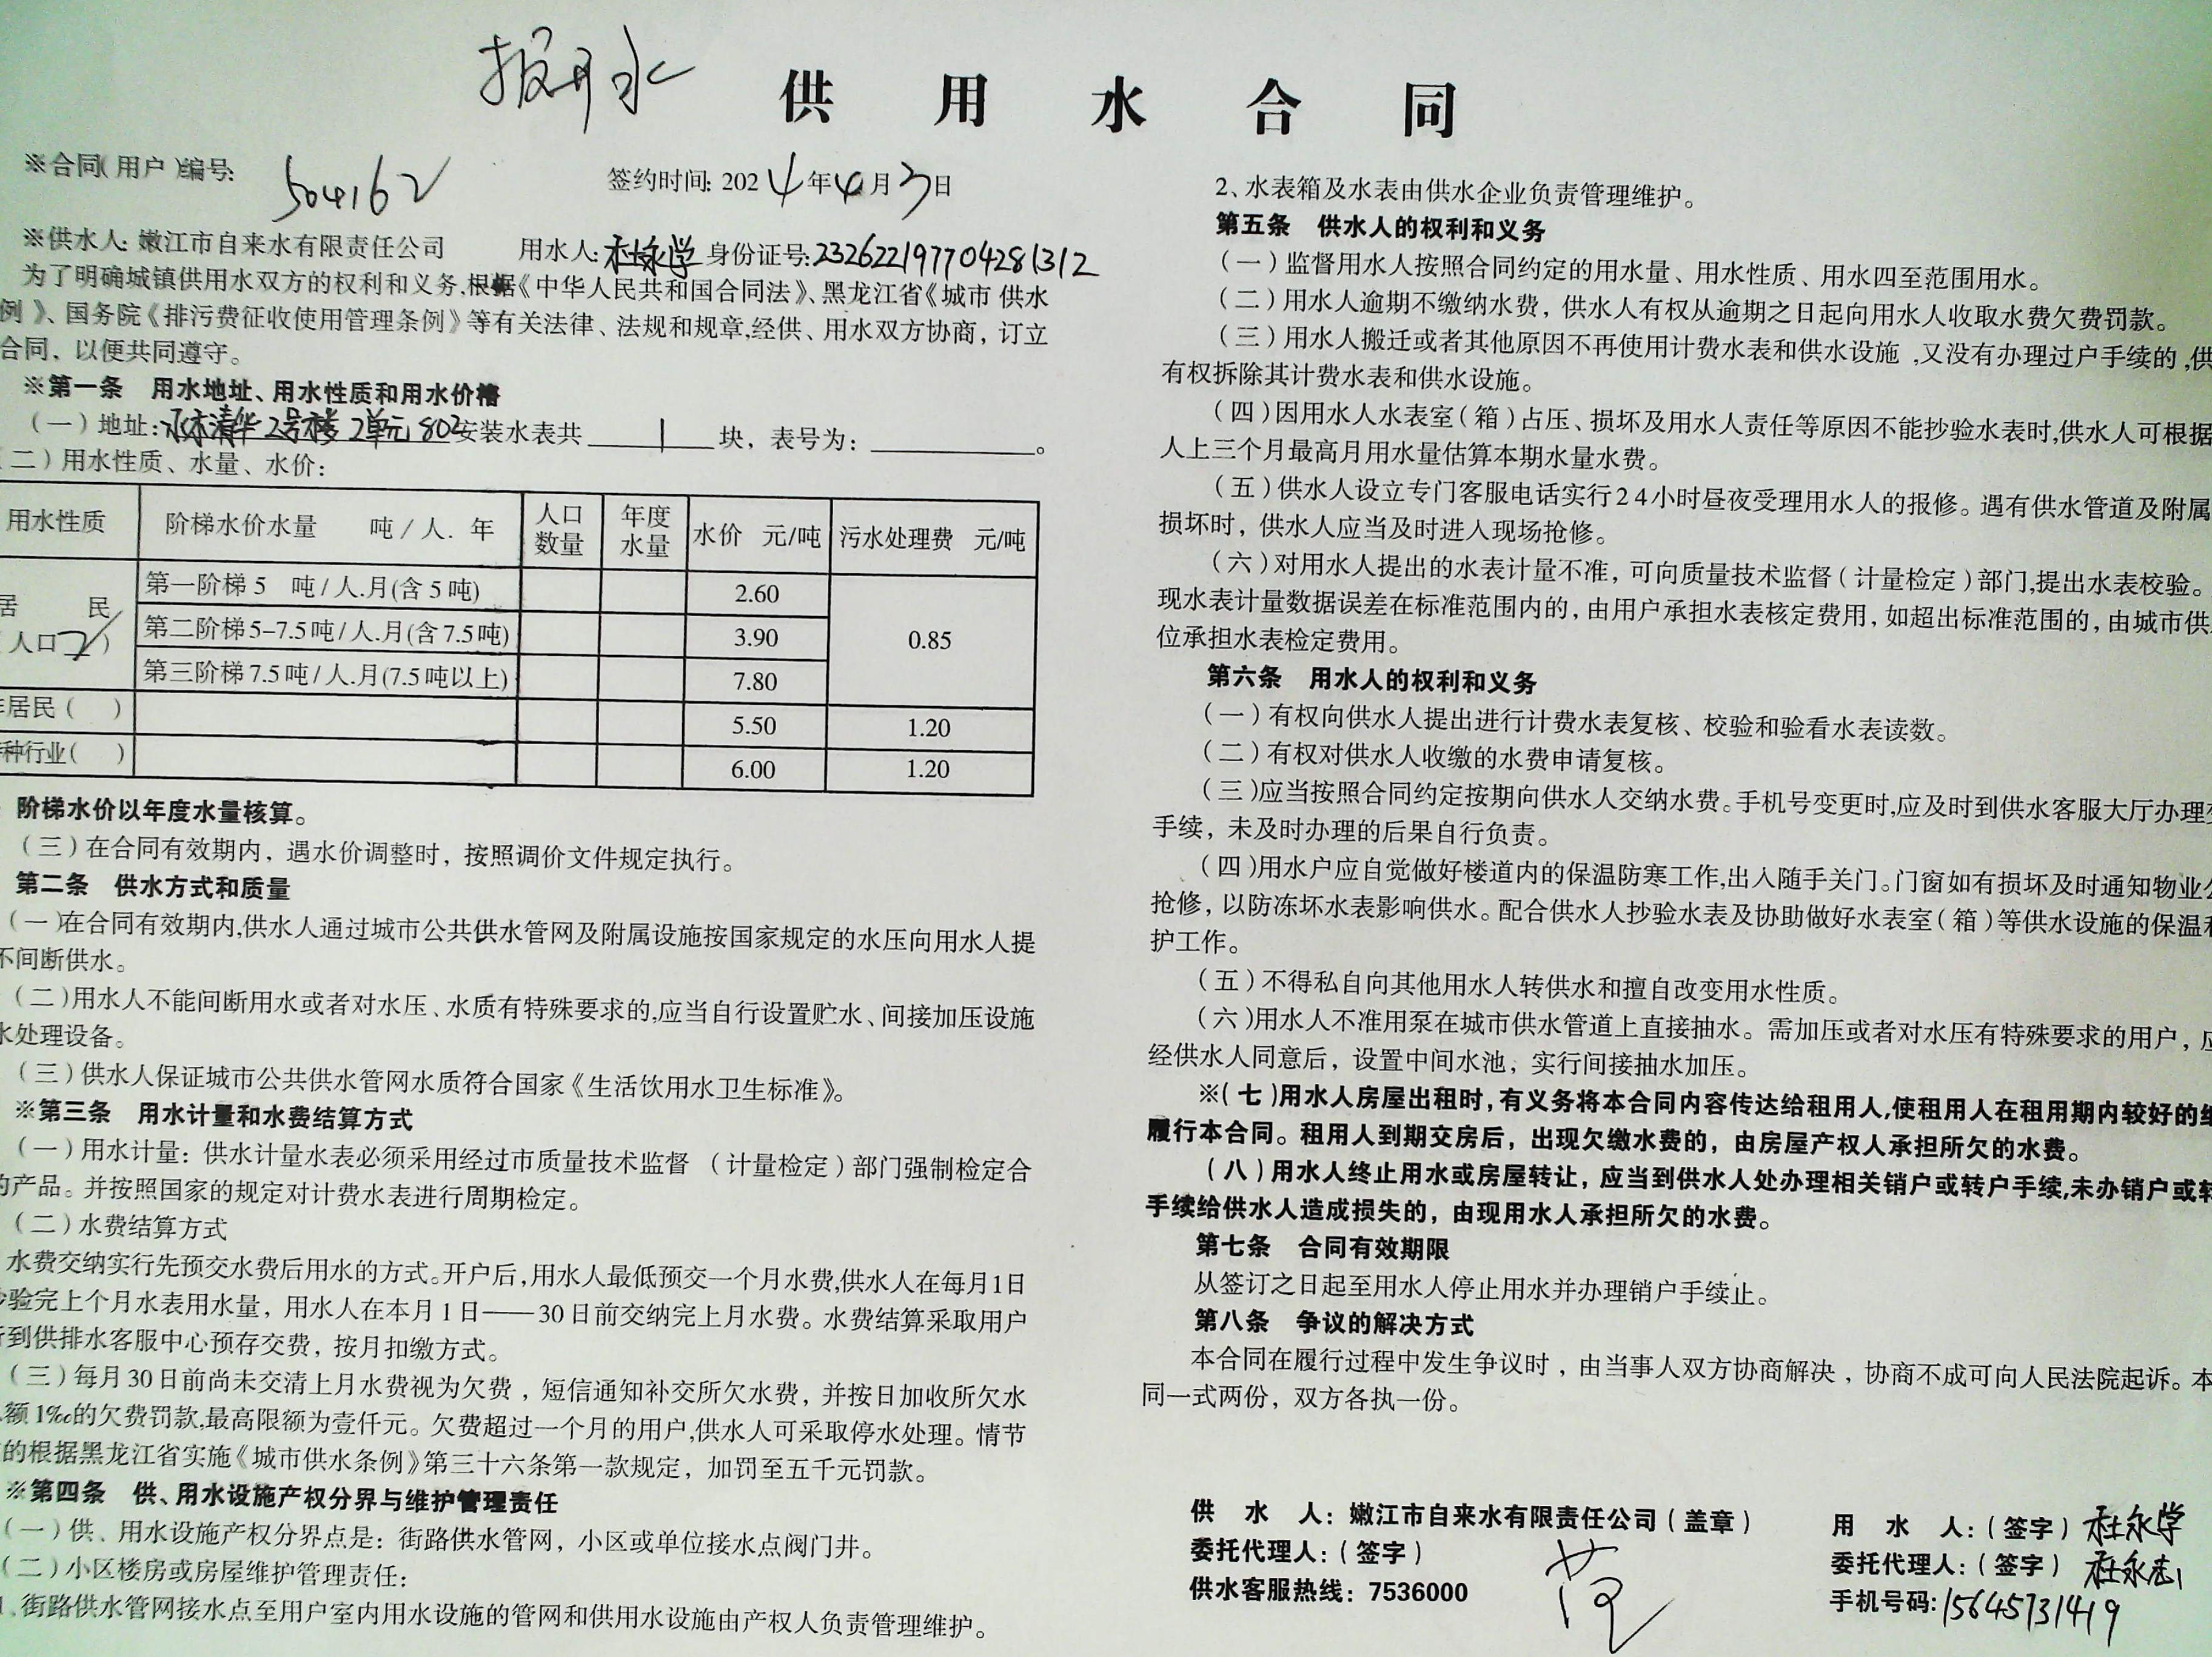 报开水
供用水合同
※合同(用户)编号: 504162
签约时间: 2024年4月3日
※供水人: 嫩江市自来水有限责任公司 用水人: 杜永学 身份证号: 232622197704281312
为了明确城镇供用水双方的权利和义务,根据《中华人民共和国合同法》、黑龙江省《城市 供水
例》、国务院《排污费征收使用管理条例》等有关法律、法规和规章,经供、用水双方协商，订立
合同，以便共同遵守。
※第一条 用水地址、用水性质和用水价
(一)地址: 水木清华2号楼2单元802 安装水表共 1 块，表号为: 。
二)用水性质、水量、水价:
用水性质 阶梯水价水量 吨/人.年 人口数量 年度水量 水价 元/吨 污水处理费 元/吨
居 民
人口 )
第一阶梯5 吨/人.月(含5吨) 2.60
第二阶梯5-7.5吨/人.月(含7.5吨) 3.90 0.85
第三阶梯7.5吨/人.月(7.5吨以上) 7.80
居民( ) 5.50 1.20
种行业( ) 6.00 1.20
阶梯水价以年度水量核算。
(三)在合同有效期内，遇水价调整时，按照调价文件规定执行。
第二条 供水方式和质量
(一)在合同有效期内,供水人通过城市公共供水管网及附属设施按国家规定的水压向用水人提
不间断供水。
(二)用水人不能间断用水或者对水压、水质有特殊要求的,应当自行设置贮水、间接加压设施
水处理设备。
(三)供水人保证城市公共供水管网水质符合国家《生活饮用水卫生标准》。
※第三条 用水计量和水费结算方式
(一)用水计量：供水计量水表必须采用经过市质量技术监督 (计量检定)部门强制检定合
的产品。并按照国家的规定对计费水表进行周期检定。
(二)水费结算方式
水费交纳实行先预交水费后用水的方式。开户后,用水人最低预交一个月水费,供水人在每月1日
验完上个月水表用水量，用水人在本月1日——30日前交纳完上月水费。水费结算采取用户
到供排水客服中心预存交费，按月扣缴方式。
(三)每月30日前尚未交清上月水费视为欠费，短信通知补交所欠水费，并按日加收所欠水
额1‰的欠费罚款,最高限额为壹仟元。欠费超过一个月的用户,供水人可采取停水处理。情节
的根据黑龙江省实施《城市供水条例》第三十六条第一款规定，加罚至五千元罚款。
※第四条 供、用水设施产权分界与维护管理责任
(一)供、用水设施产权分界点是：街路供水管网，小区或单位接水点阀门井。
(二)小区楼房或房屋维护管理责任:
1、街路供水管网接水点至用户室内用水设施的管网和供用水设施由产权人负责管理维护。
2、水表箱及水表由供水企业负责管理维护。
第五条 供水人的权利和义务
(一)监督用水人按照合同约定的用水量、用水性质、用水四至范围用水。
(二)用水人逾期不缴纳水费，供水人有权从逾期之日起向用水人收取水费欠费罚款。
(三)用水人搬迁或者其他原因不再使用计费水表和供水设施，又没有办理过户手续的,供
有权拆除其计费水表和供水设施。
(四)因用水人水表室(箱)占压、损坏及用水人责任等原因不能抄验水表时,供水人可根据
人上三个月最高月用水量估算本期水量水费。
(五)供水人设立专门客服电话实行24小时昼夜受理用水人的报修。遇有供水管道及附属
损坏时，供水人应当及时进入现场抢修。
(六)对用水人提出的水表计量不准，可向质量技术监督(计量检定)部门,提出水表校验。
现水表计量数据误差在标准范围内的，由用户承担水表核定费用，如超出标准范围的，由城市供
位承担水表检定费用。
第六条 用水人的权利和义务
(一)有权向供水人提出进行计费水表复核、校验和验看水表读数。
(二)有权对供水人收缴的水费申请复核。
(三)应当按照合同约定按期向供水人交纳水费。手机号变更时,应及时到供水客服大厅办理变
手续，未及时办理的后果自行负责。
(四)用水户应自觉做好楼道内的保温防寒工作,出入随手关门。门窗如有损坏及时通知物业公
抢修，以防冻坏水表影响供水。配合供水人抄验水表及协助做好水表室(箱)等供水设施的保温和
护工作。
(五)不得私自向其他用水人转供水和擅自改变用水性质。
(六)用水人不准用泵在城市供水管道上直接抽水。需加压或者对水压有特殊要求的用户，应
经供水人同意后，设置中间水池，实行间接抽水加压。
※(七)用水人房屋出租时,有义务将本合同内容传达给租用人,使租用人在租用期内较好的继
履行本合同。租用人到期交房后，出现欠缴水费的，由房屋产权人承担所欠的水费。
(八)用水人终止用水或房屋转让，应当到供水人处办理相关销户或转户手续,未办销户或转
手续给供水人造成损失的，由现用水人承担所欠的水费。
第七条 合同有效期限
从签订之日起至用水人停止用水并办理销户手续止。
第八条 争议的解决方式
本合同在履行过程中发生争议时，由当事人双方协商解决，协商不成可向人民法院起诉。本
同一式两份，双方各执一份。
供 水 人: 嫩江市自来水有限责任公司(盖章)
委托代理人:(签字)
供水客服热线: 7536000
用 水 人:(签字) 杜永学
委托代理人:(签字) 杜永志
手机号码: 15645731419